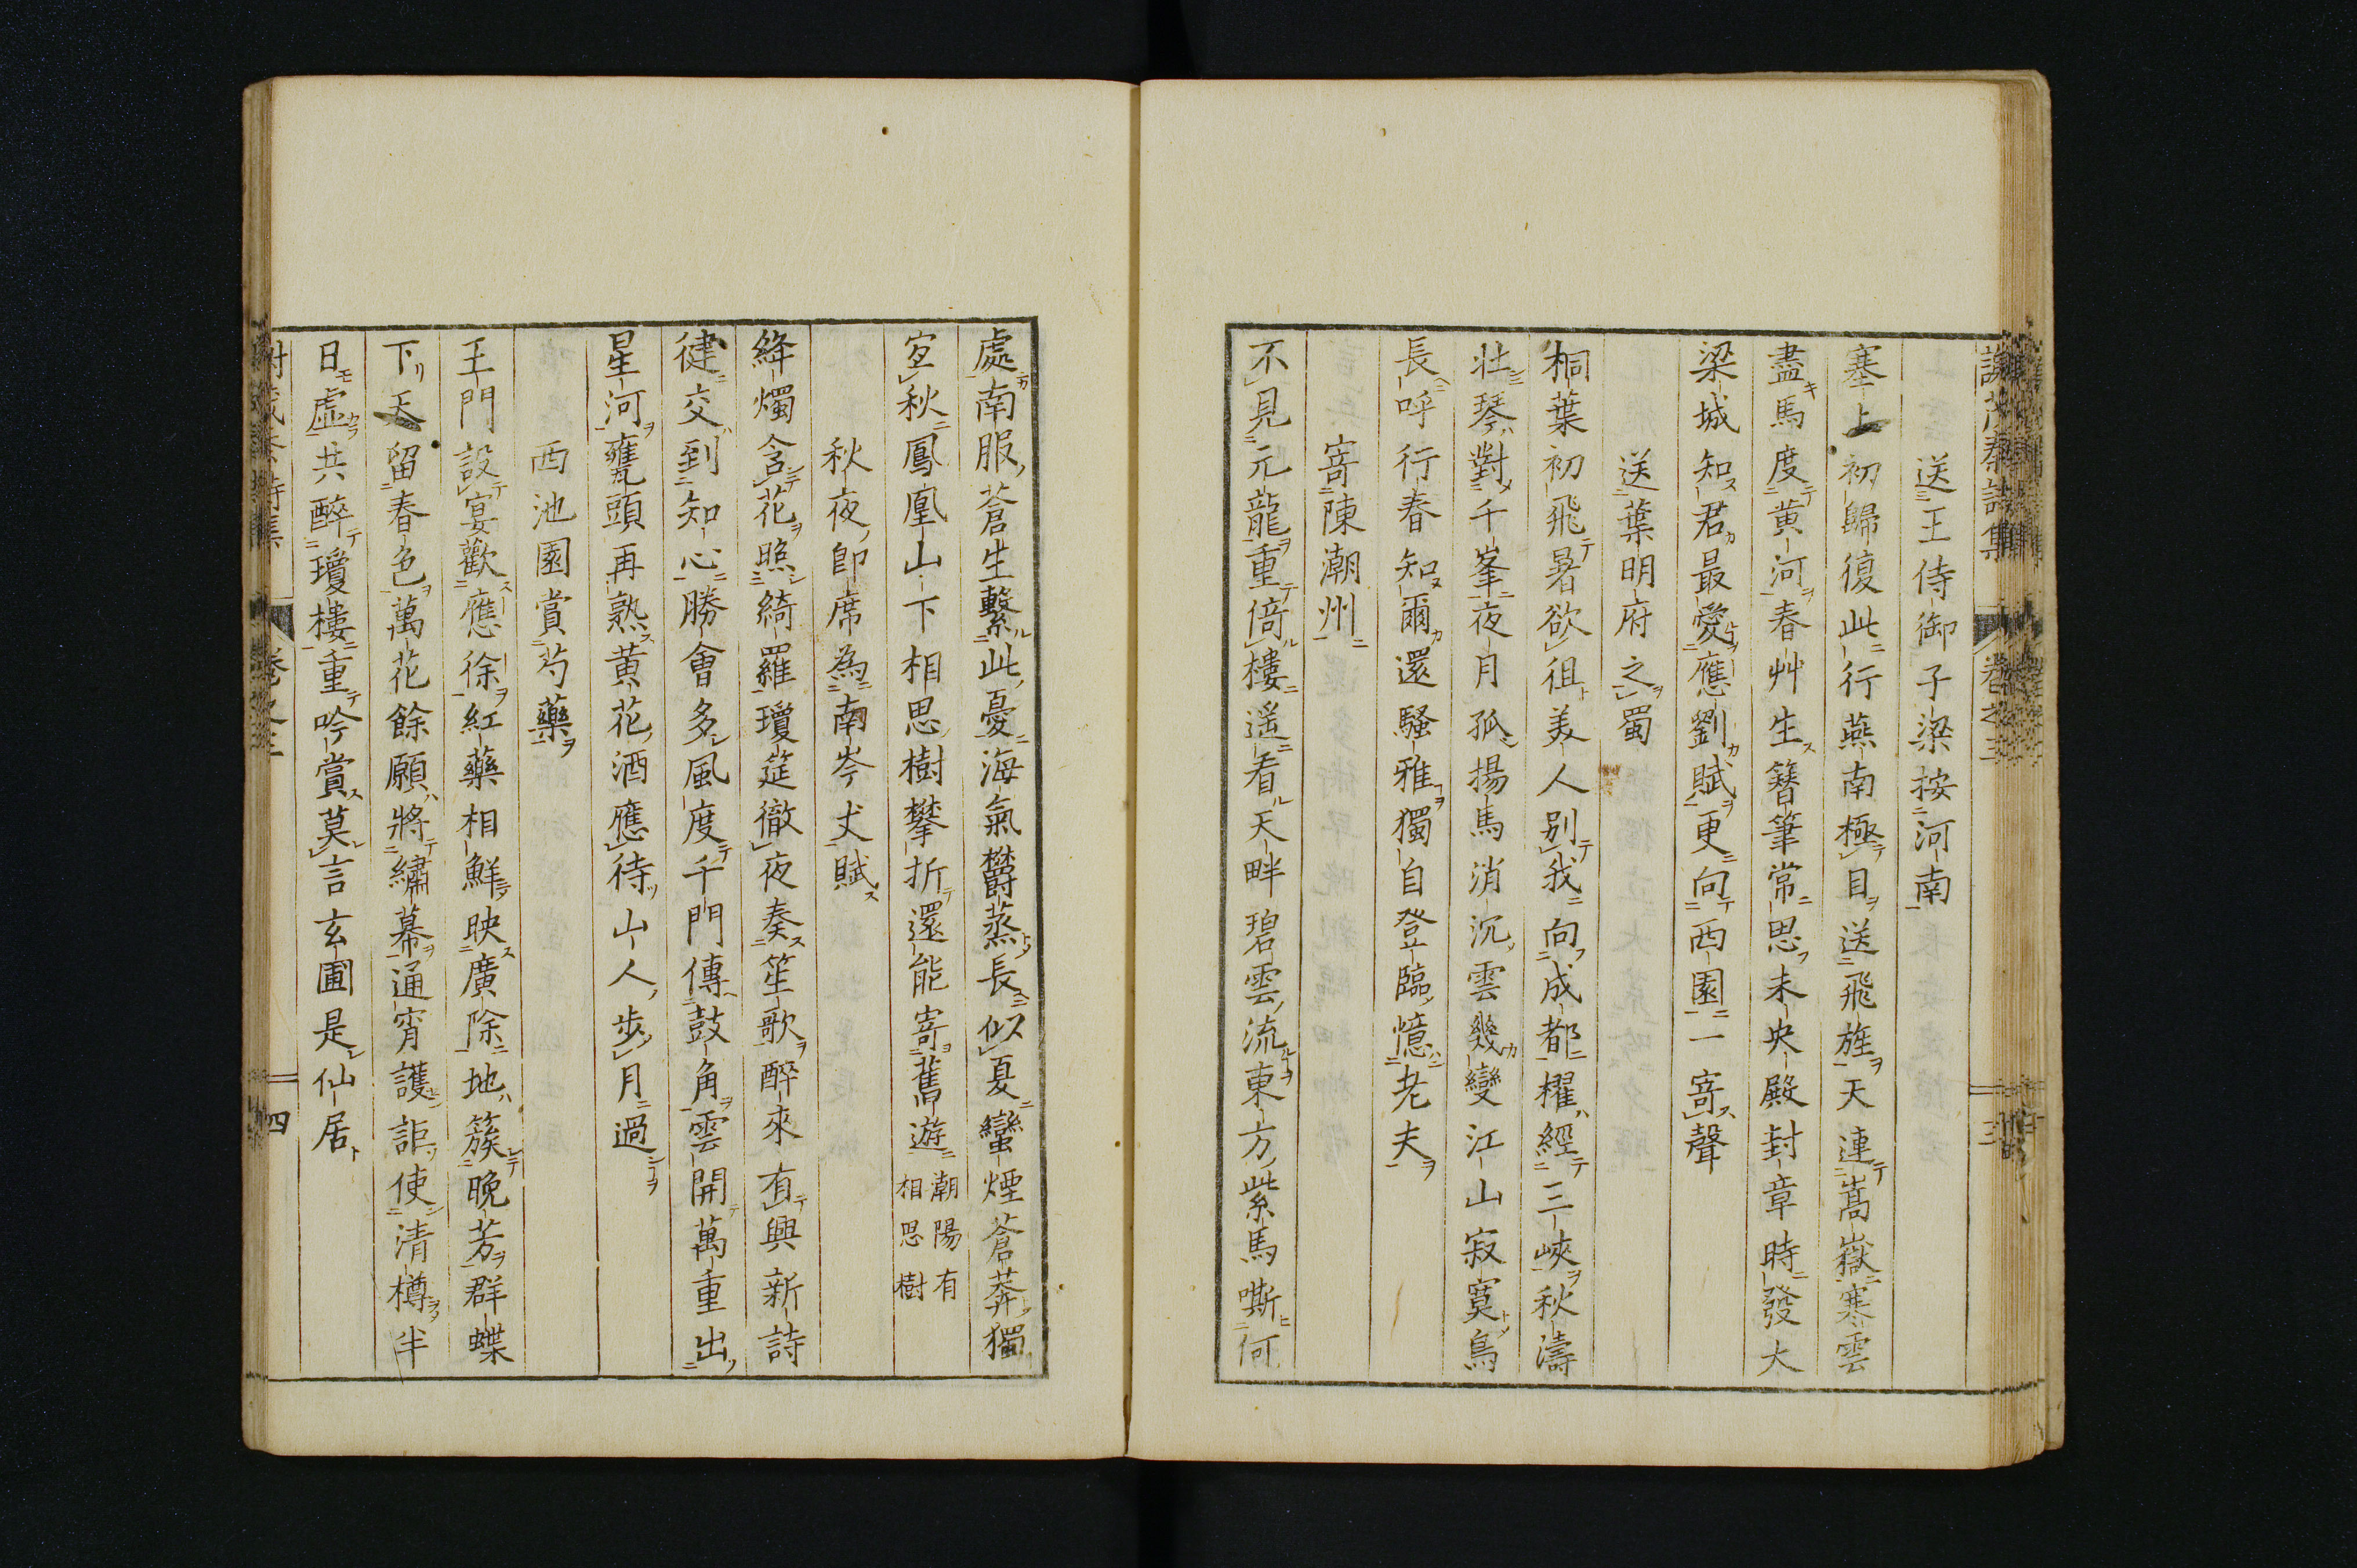 謝茂秦詩集 卷之三 三
送王侍御子梁按河南
塞上初歸復此行燕南極目送飛旌天連嵩嶽寒雲
盡馬度黄河春艸生簪筆常思未央殿封章時發大
梁城知君最愛應劉賦更向西園一寄聲
送葉明府之蜀
桐葉初飛暑欲徂美人別我向成都櫂經三峽秋濤
壮琴對千峯夜月孤揚馬消沉雲幾變江山寂寞鳥
長呼行春知爾還騷雅獨自登臨憶老夫
寄陳潮州
不見元龍重倚樓遥看天畔碧雲流東方紫馬嘶何
處南服蒼生繫此憂海氣欝蒸長似夏蠻煙蒼莽獨
宜秋鳳凰山下相思樹攀折還能寄舊遊潮陽有
相思樹
秋夜卽席為南岑丈賦
絳燭含花照綺羅瓊筵徹夜奏笙歌醉來有興新詩
健交到知心勝會多風度千門傳鼓角雲開萬重出
星河甕頭再熟黄花酒應待山人歩月過
西池園賞芍藥
王門設宴歡應徐紅藥相鮮映廣除地簇晩芳群蝶
下天留春色萬花餘願將繡幕通宵護詎使清樽半
日虚共醉瓊樓重吟賞莫言玄圃是仙居
謝茂秦詩集 卷之三 四